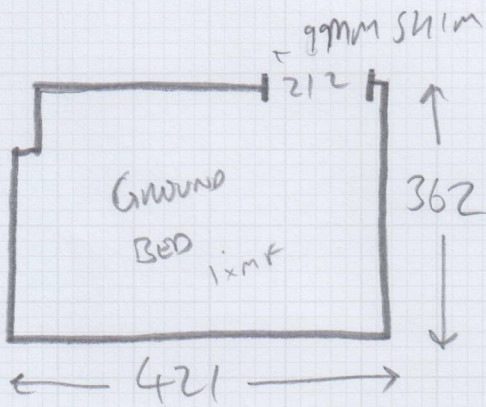 99MM SHIM
212
GROUND
BED
1xMF
362
421